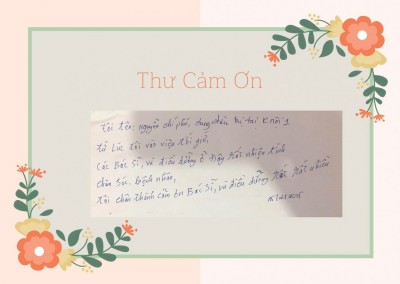 Thư Cảm Ơn
Tôi tên: nguyễn chí phê, đang điều trị tại K nội 1
từ lúc tôi vào viện tới giờ,
các Bác Sĩ, và điều dưỡng ở đây rất nhiệt tình
chăm sóc bệnh nhân,
tôi chân thành cảm ơn Bác Sĩ, và điều dưỡng rất rất nhiều